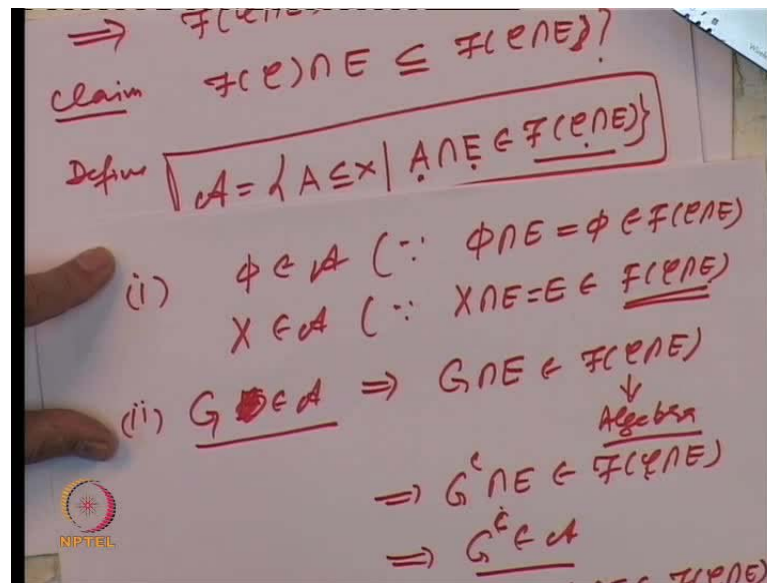 ⇒ F(C∩E)
Claim F(C)∩E ⊆ F(C∩E)?
Define A = {A ⊆ X | A∩E ∈ F(C∩E)}
(i) φ ∈ A (∵ φ∩E = φ ∈ F(C∩E)
X ∈ A (∵ X∩E = E ∈ F(C∩E)
(ii) G ∈ A ⇒ G∩E ∈ F(C∩E)
↓
Algebra
⇒ G^c ∩E ∈ F(C∩E)
⇒ G^c ∈ A
∈ F(C∩E)
NPTEL